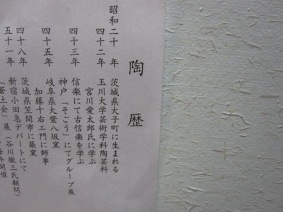 陶歴
昭和二十 年 茨城県大子町に生まれる
四十二年 玉川大学芸術学科陶芸科
宮川愛太郎氏に学ぶ
信楽にて古信楽を学ぶ
四十三年 神戸「そごう」にてグループ展
岐阜県大萱八坂窯
四十五年 加藤十右エ門に師事
四十八年 茨城県笠間市に築窯
五十一年 新宿小田急デパートにて
土会」展(谷川徹三氏顧問)